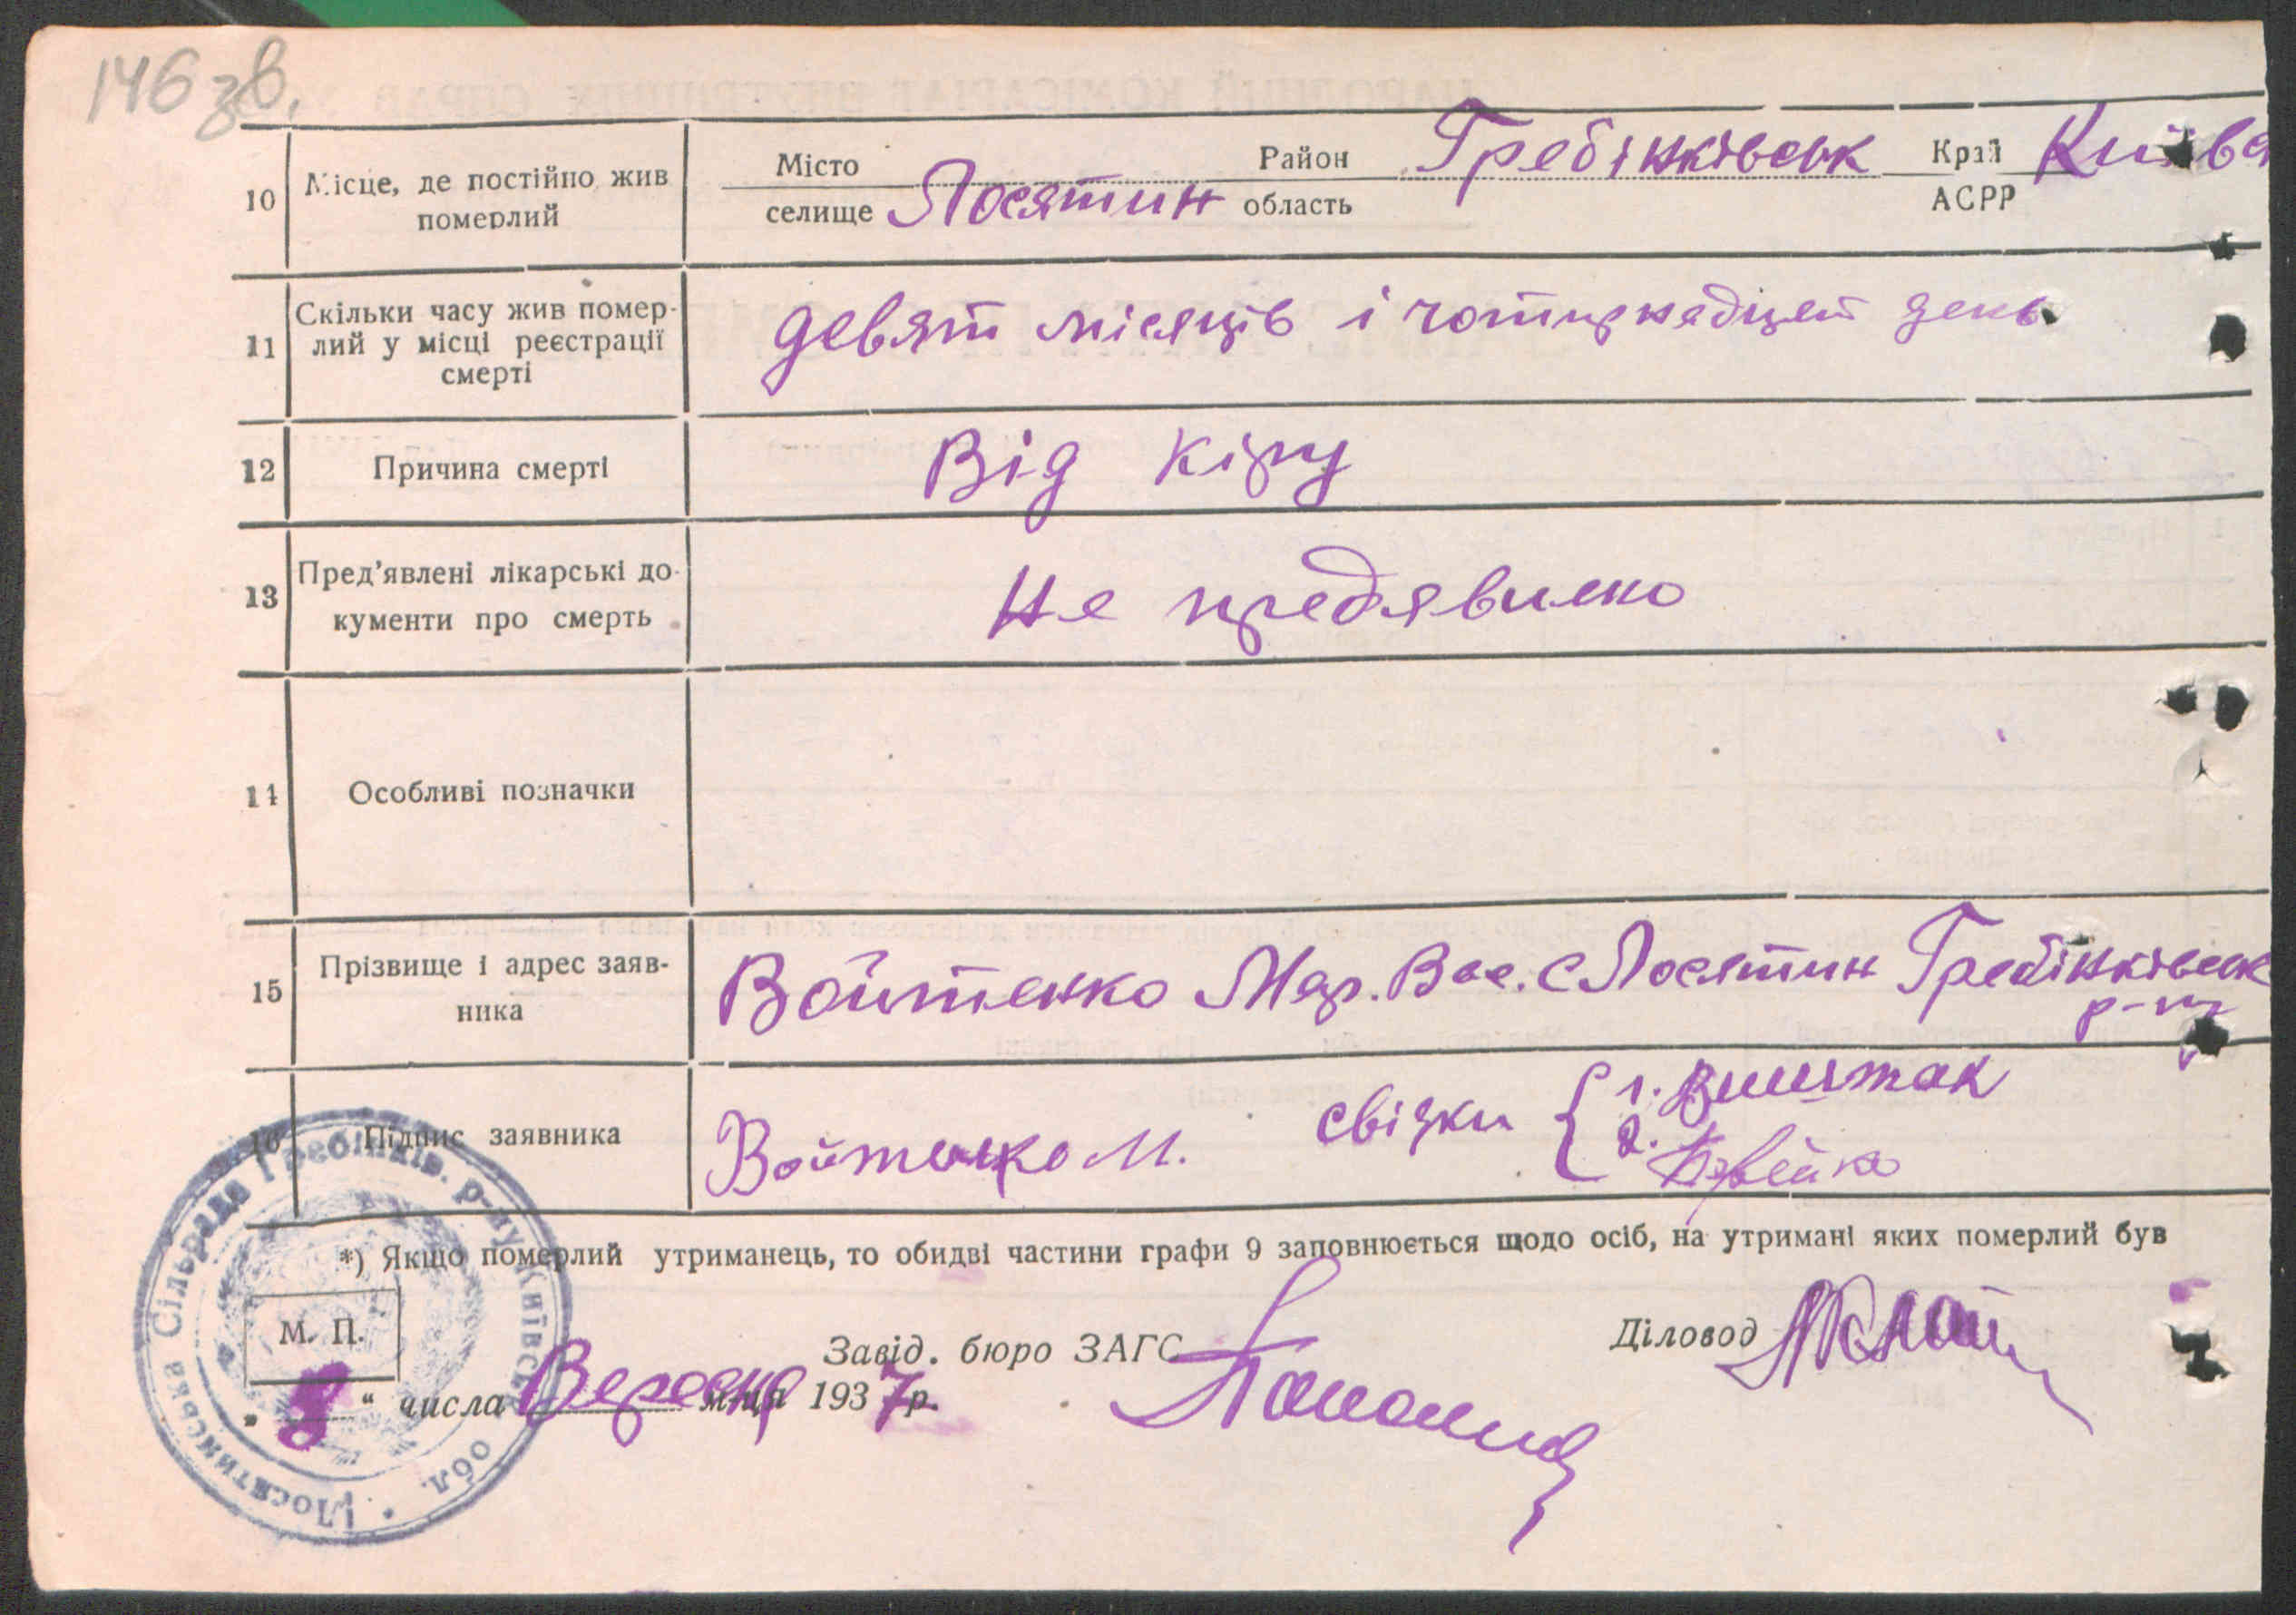 146 зв.
10 Місце, де постійно жив померлий
Місто селище Лосятин Район область Гребінківськ Край АСРР Київс
11 Скільки часу жив помер-
лий у місці реєстрації
смерті
девят місяців і чотирнадцят день
12 Причина смерті Від кіру
13 Пред’явлені лікарські до-
кументи про смерть
Не предявлено
14 Особливі позначки
15 Прізвище і адрес заяв-
ника
Войтенко Мар. Вас. с Лосятин Гребінківськ
р-ну
16 Підпис заявника
Войтенко М. свідки { 1.
2.
*) Якщо померлий утриманець, то обидві частини графи 9 заповнюється щодо осіб, на утримані яких померлий був
М. П.
Завід. бюро ЗАГС
Діловод
„ 8 “ числа Вересня м-ця 1937 р.
Лосятинська Сільрада Гребінків. р-ну Київськ. обл.